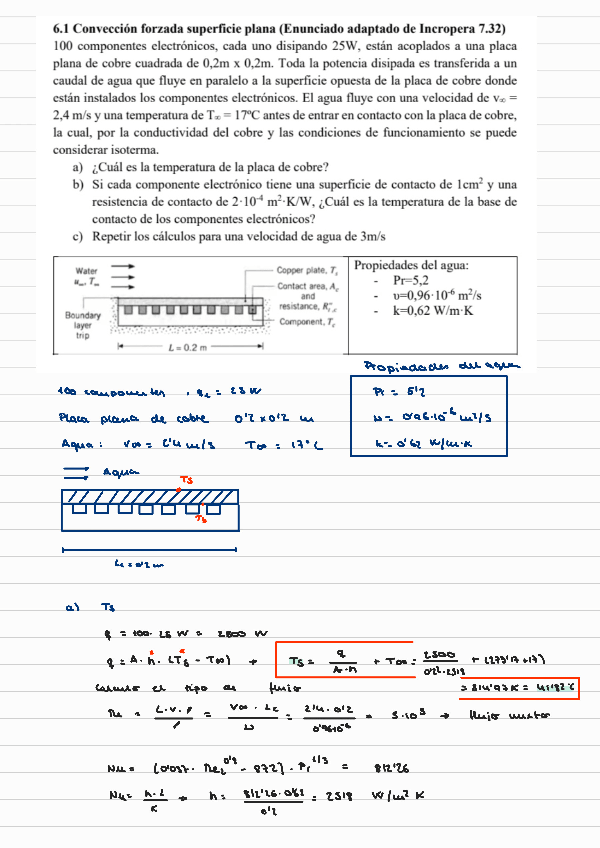 6.1 Convección forzada superficie plana (Enunciado adaptado de Incropera 7.32)
100 componentes electrónicos, cada uno disipando 25W, están acoplados a una placa
plana de cobre cuadrada de 0,2m x 0,2m. Toda la potencia disipada es transferida a un
caudal de agua que fluye en paralelo a la superficie opuesta de la placa de cobre donde
están instalados los componentes electrónicos. El agua fluye con una velocidad de v∞ =
2,4 m/s y una temperatura de T∞ = 17ºC antes de entrar en contacto con la placa de cobre,
la cual, por la conductividad del cobre y las condiciones de funcionamiento se puede
considerar isoterma.
a) ¿Cuál es la temperatura de la placa de cobre?
b) Si cada componente electrónico tiene una superficie de contacto de 1cm² y una
resistencia de contacto de 2·10⁻⁴ m²·K/W, ¿Cuál es la temperatura de la base de
contacto de los componentes electrónicos?
c) Repetir los cálculos para una velocidad de agua de 3m/s
Water
u∞, T∞
Boundary
layer
trip
L = 0.2 m
Copper plate, Ts
Contact area, Ac
and
resistance, R''t,c
Component, Tc
Propiedades del agua:
- Pr=5,2
- υ=0,96·10⁻⁶ m²/s
- k=0,62 W/m·K
Propiedades del agua
100 componentes , qc = 25 W
Pr = 5'2
Placa plana de cobre 0'2 x 0'2 m
υ = 0'96·10⁻⁶ m²/s
Agua: V∞ = 2'4 m/s T∞ = 17°C
k = 0'62 W/m·K
Agua
Ts
Lc = 0'2 m
a) Ts
q = 100 · 25 W = 2500 W
q = A · h · (Ts - T∞) → Ts = q / A·h + T∞ = 2500 / 0'2²·2518 + (273'17+17)
= 314'97 K = 41'82°C
Calculo el tipo de flujo
Re = L·v·ρ / μ = V∞ · Lc / υ = 2'4 · 0'2 / 0'96·10⁻⁶ = 5·10⁵ → flujo mixto
Nu = (0'037 · ReL^0'8 - 872) · Pr^1/3 = 812'26
Nu = h·L / k → h = 812'26 · 0'62 / 0'2 = 2518 W/m² K